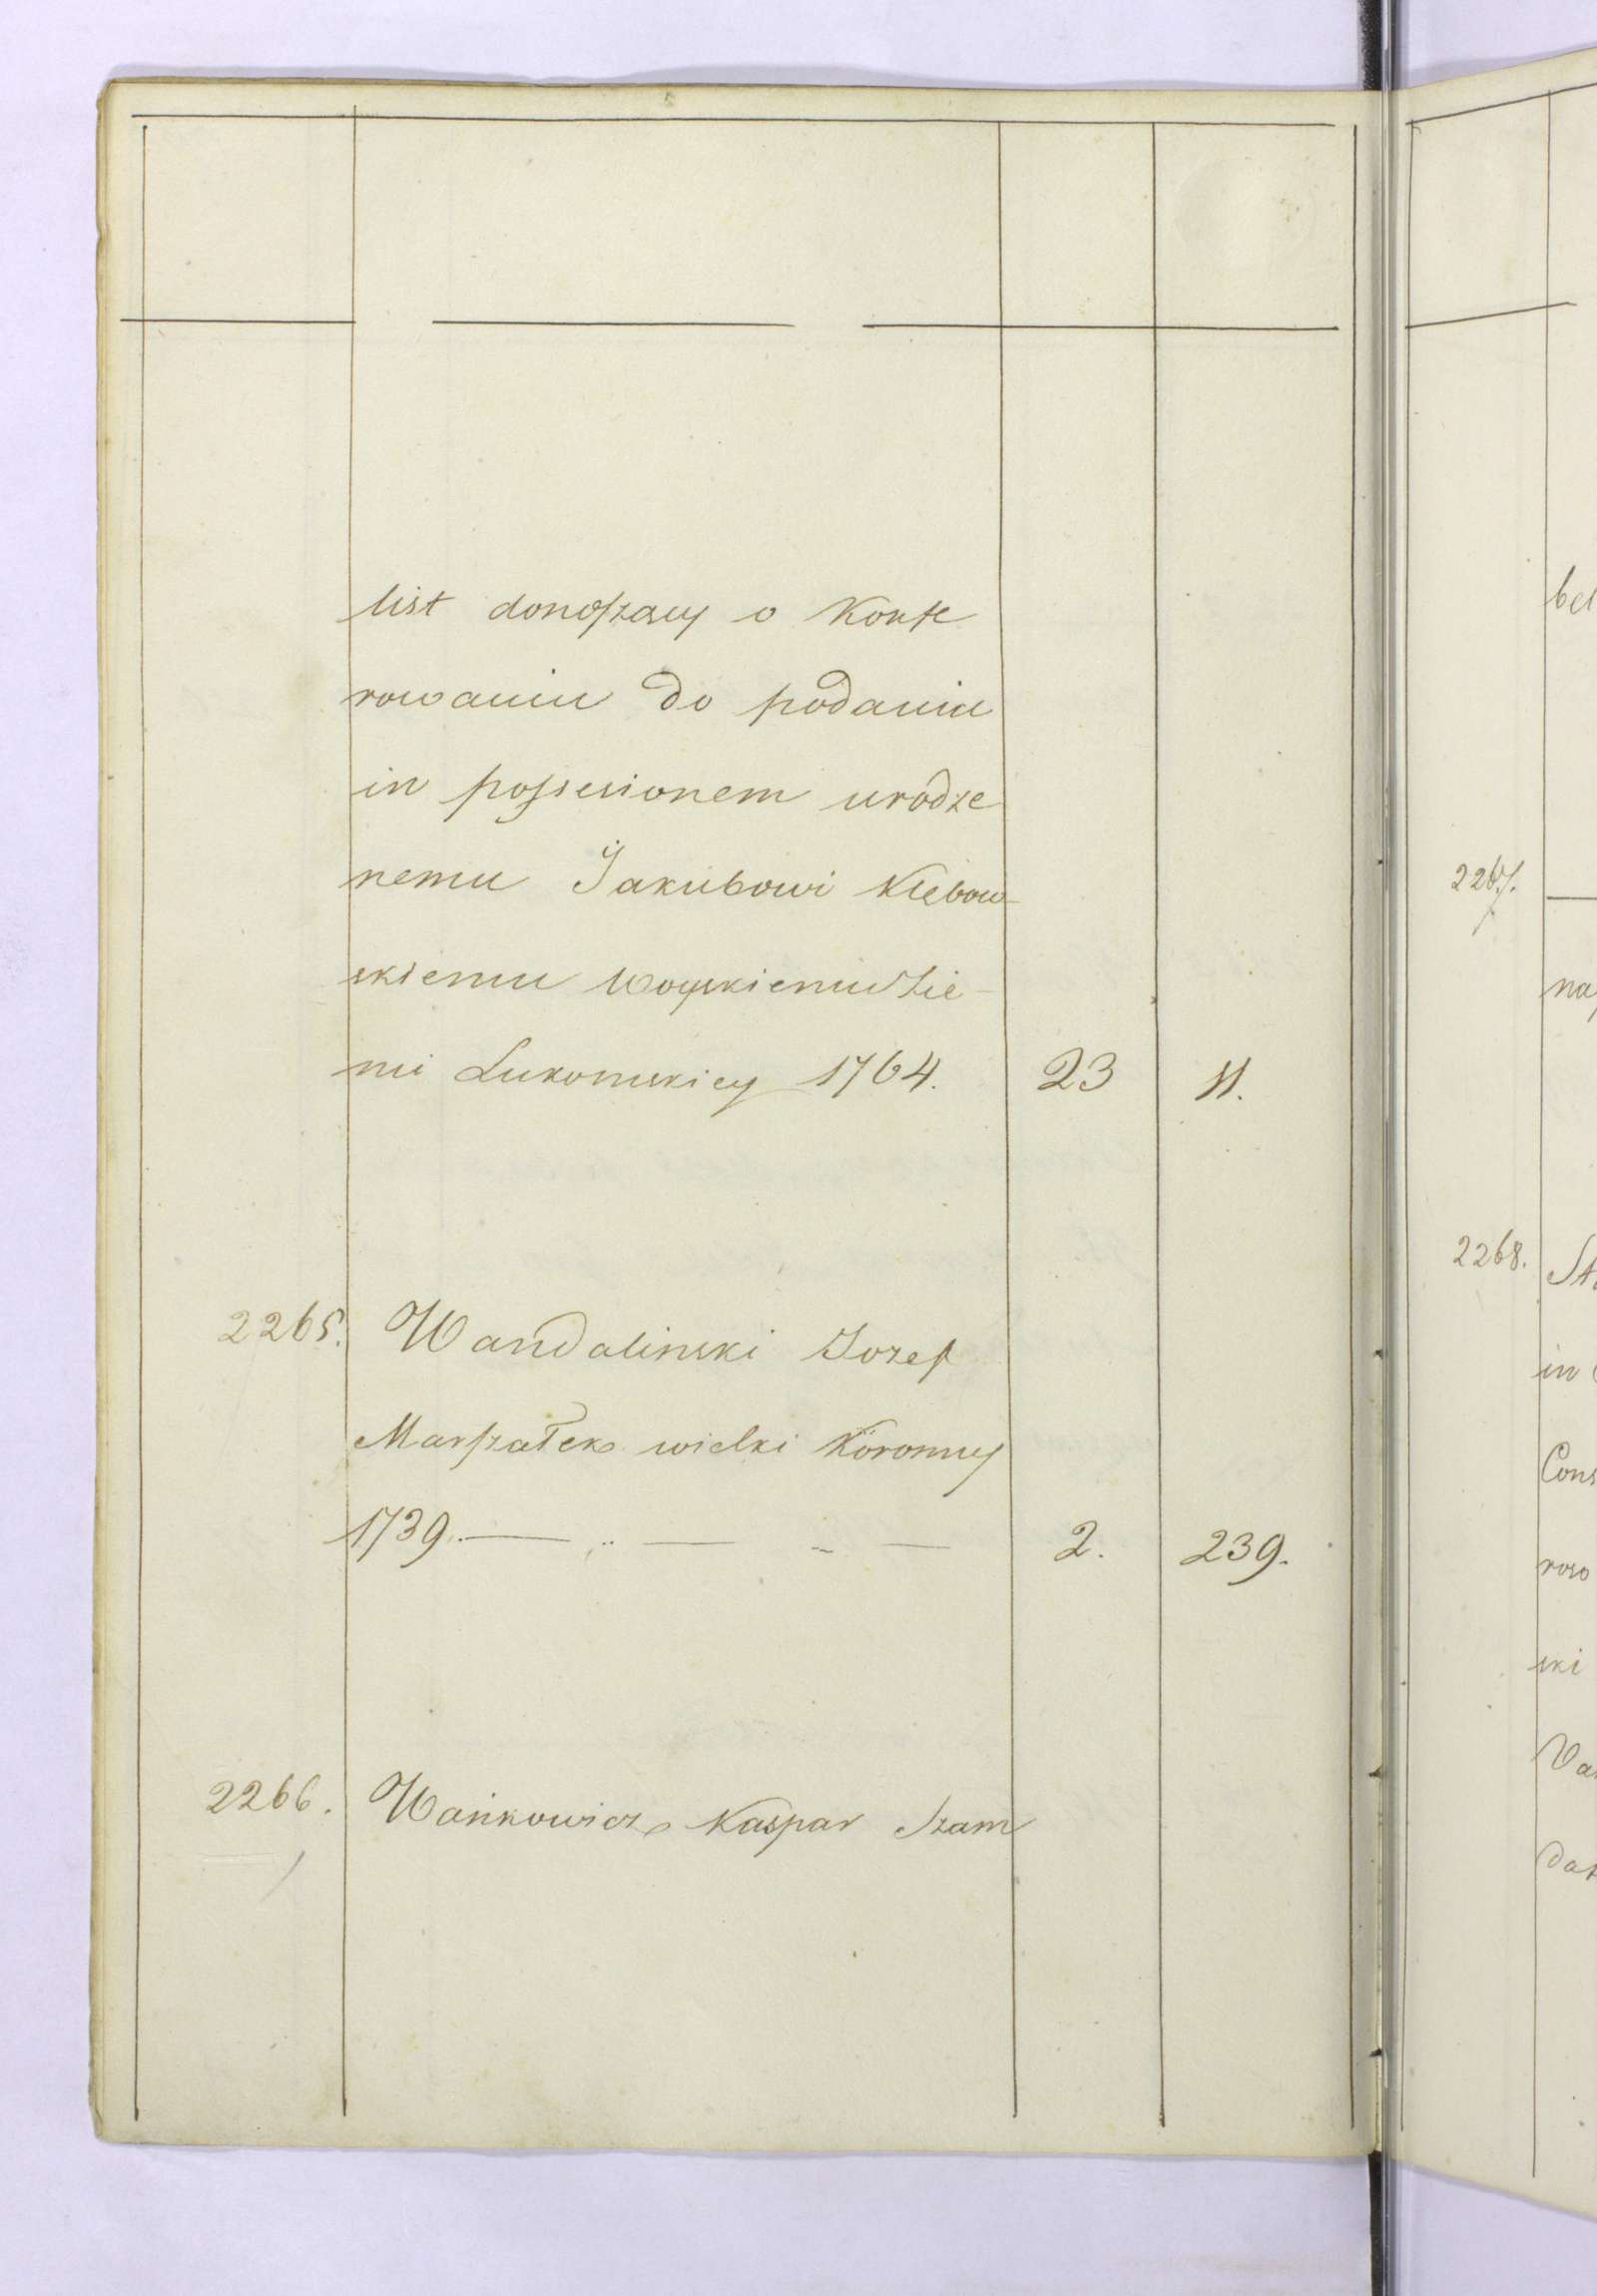 list donoszący o Konfe
rowaniu do podaniu
in possesionem urodze
nemu Jakubowi Kłębow-
skiemu Woyskiemu Zie-
mi Lukowskiey 1764. 23 11.
2265. Wandalinski Jozef
Marszałek wielki Koronny
1739. — .. — - — 2. 239.
2266. Wańkowicz Kaspar Szam
bel
2267.
na
2268. Sta
in
Cons
row
ski
Va
dat